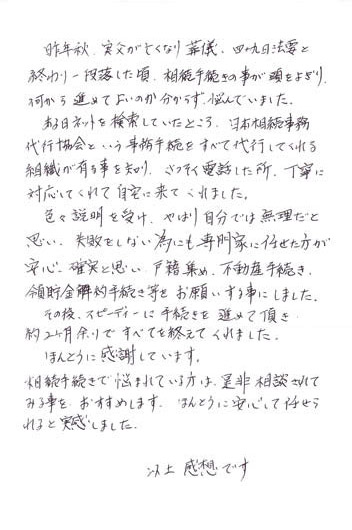 昨年秋、実父が亡くなり葬儀、四十九日法要と
終わり一段落した頃、相続手続きの事が頭をよぎり、
何から進めてよいのか分からず、悩んでいました。
ある日ネットを検索していたところ、日本相続事務
代行協会という事務手続をすべて代行してくれる
組織が有る事を知り、さっそく電話した所、丁寧に
対応してくれて自宅に来てくれました。
色々説明を受け、やはり自分では無理だと
思い、失敗をしない為にも専門家に任せた方が
安心、確実と思い、戸籍集め、不動産手続き、
預貯金解約手続き等をお願いする事にしました。
その後、スピーディーに手続きを進めて頂き
約2ヶ月余りですべてを終えてくれました。
ほんとうに感謝しています。
相続手続きで悩まれている方は、是非相談されて
みる事をおすすめします。ほんとうに安心して任せら
れると実感しました。
以上 感想です